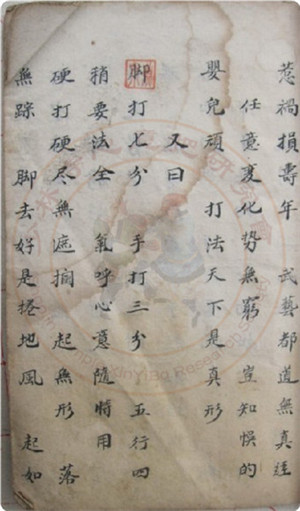 惹禍損壽年　武藝都道無真經
任意变化势無窮　豈知悞的
嬰兒頑　打法天下是真形
又曰
脚打七分　手打三分　五行四
稍要法全　氣呼心意隨時用
硬打硬尽無遮搁　起無形　落
無踪　脚去好是捲地風　起如